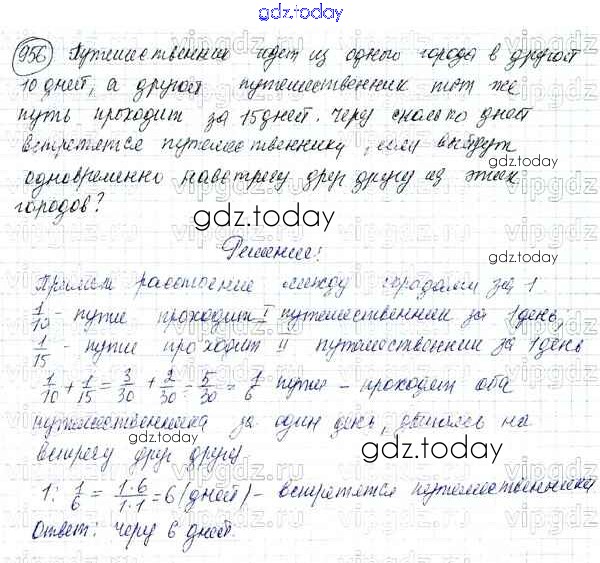 gdz.today
956 Путешественник идет из одного города в другой
10 дней, а другой путешественник тот же
путь проходит за 15 дней. Через сколько дней
встретятся путешественники, если выйдут
gdz.today
одновременно навстречу друг другу из этих
городов?
gdz.today
Решение:
Примем расстояние между городами за 1
1/10 - пути проходит I путешественник за 1 день;
1/15 - пути проходит II путешественник за 1 день
1/10 + 1/15 = 3/30 + 2/30 = 5/30 = 1/6 пути - проходят оба
путешественника за один день, двигаясь на
встречу друг другу.
gdz.today
1 : 1/6 = 1·6/1·1 = 6 (дней) - встретятся путешественники
Ответ: через 6 дней.
gdz.today